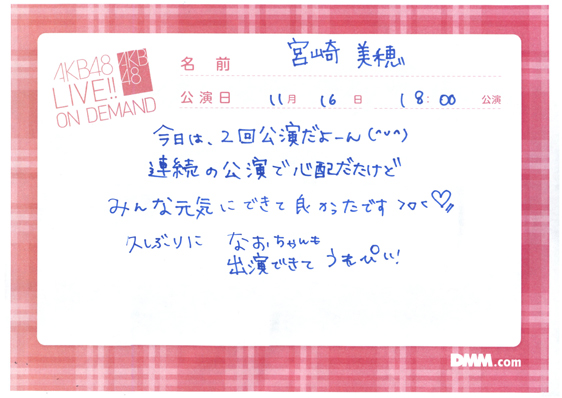 AKB48
LIVE!!
ON DEMAND
AKB
48
名前 宮崎 美穂
公演日 11月 16日 18:00 公演
今日は、2回公演だよーん(^v^)
連続の公演で心配だたけど
みんな元気にできて良かったです >o<♡
久しぶりに なおちゃんも
出演できて うもぴぃ!
DMM.com